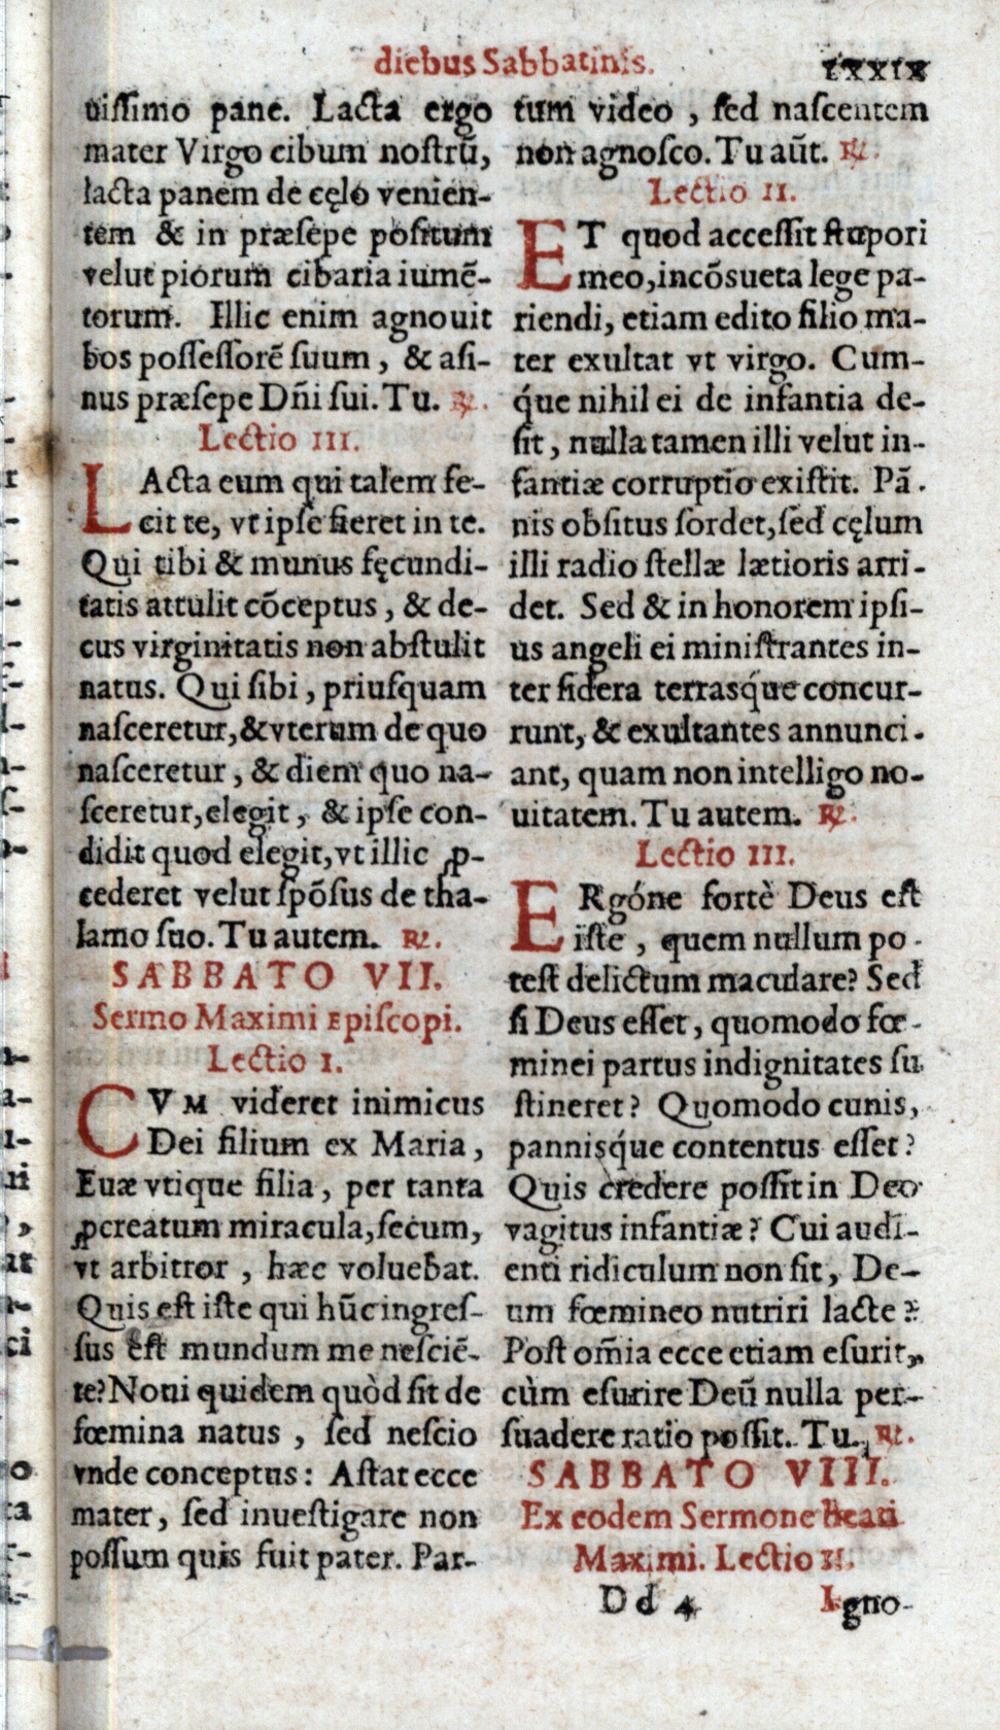 diebus Sabbatinis. lxxix
uiſſimo pane. Lacta ergo
mater Virgo cibum noſtrũ,
lacta panem de cęlo venien-
tem & in præſepe poſitum
velut piorum cibaria iumẽ-
torum. Illic enim agnouit
bos poſſeſſorẽ ſuum, & aſi-
nus præſepe Dñi ſui. Tu. ℟.
Lectio III.
LActa eum qui talem fe-
cit te, vt ipſe fieret in te.
Qui tibi & munus fęcundi-
tatis attulit cõceptus, & de-
cus virginitatis non abſtulit
natus. Qui ſibi, priuſquam
naſceretur, & vterum de quo
naſceretur, & diem quo na-
ſceretur, elegit, & ipſe con-
didit quod elegit, vt illic ꝓ-
cederet velut ſpõſus de tha-
lamo ſuo. Tu autem. ℟.
SABBATO VII.
Sermo Maximi Epiſcopi.
Lectio I.
CVM videret inimicus
Dei filium ex Maria,
Euæ vtique filia, per tanta
ꝓcreatum miracula, ſecum,
vt arbitror, hæc voluebat.
Quis eſt iſte qui hũc ingreſ-
ſus eſt mundum me neſciẽ-
te? Noui quidem quòd ſit de
fœmina natus, ſed neſcio
vnde conceptus: Aſtat ecce
mater, ſed inueſtigare non
poſſum quis fuit pater. Par-
tum video, ſed naſcentem
non agnoſco. Tu aũt. ℟.
Lectio II.
ET quod acceſſit ſtupori
meo, incõſueta lege pa-
riendi, etiam edito filio ma-
ter exultat vt virgo. Cum-
q́ue nihil ei de infantia de-
ſit, nulla tamen illi velut in-
fantiæ corruptio exiſtit. Pã-
nis obſitus ſordet, ſed cęlum
illi radio ſtellæ lætioris arri-
det. Sed & in honorem ipſi-
us angeli ei miniſtrantes in-
ter ſidera terrasq́ue concur-
runt, & exultantes annunci-
ant, quam non intelligo no-
uitatem. Tu autem. ℟.
Lectio III.
ERgóne fortè Deus eſt
iſte, quem nullum po-
teſt delictum maculare? Sed
ſi Deus eſſet, quomodo fœ-
minei partus indignitates ſu
ſtineret? Quomodo cunis,
pannisq́ue contentus eſſet?
Quis credere poſſit in Deo
vagitus infantiæ? Cui audi-
enti ridiculum non ſit, De-
um fœmineo nutriri lacte?
Poſt om̃ia ecce etiam eſurit,
cùm eſurire Deũ nulla per-
ſuadere ratio poſſit. Tu. ℟.
SABBATO VIII.
Ex eodem Sermone Beati
Maximi. Lectio I.
Dd 4 Igno-